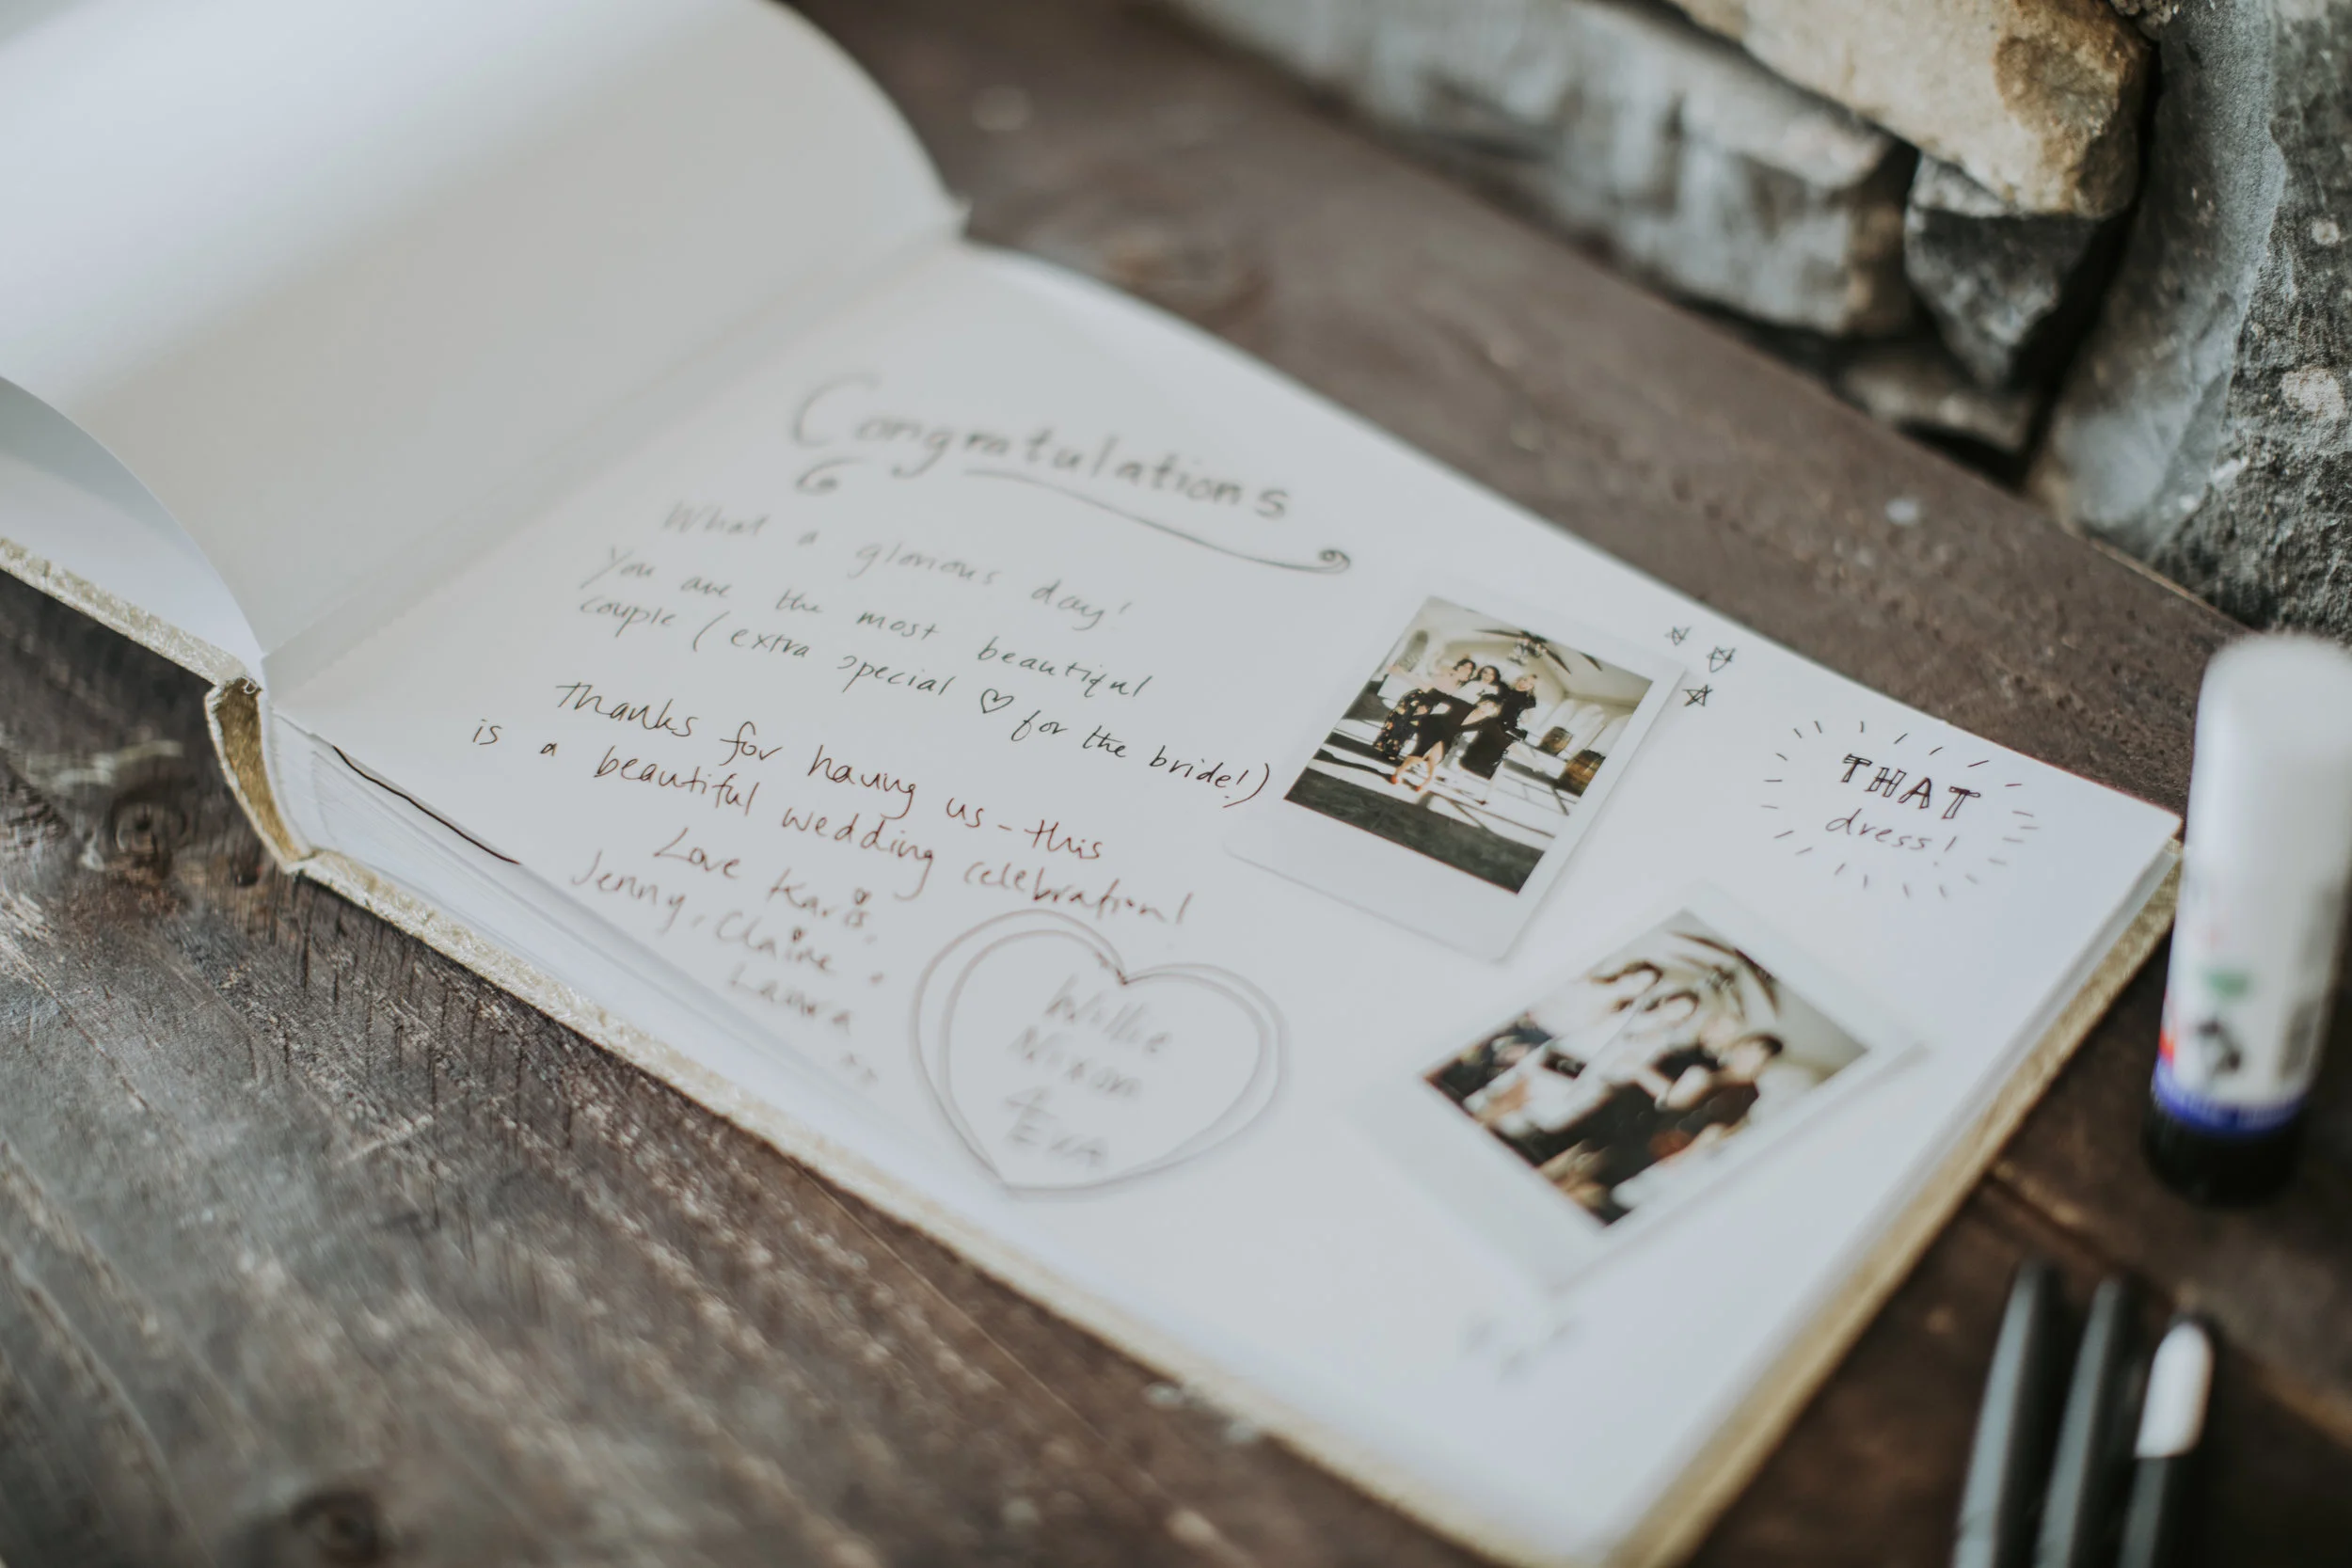 Congratulations
What a glorious day!
You are the most beautiful
couple (extra special ♡ for the bride!)
Thanks for having us - this
is a beautiful wedding celebration!
Love Karis,
Jenny, Claire,
Laura
xx
Willie
Nixon
& Eva
THAT
dress!